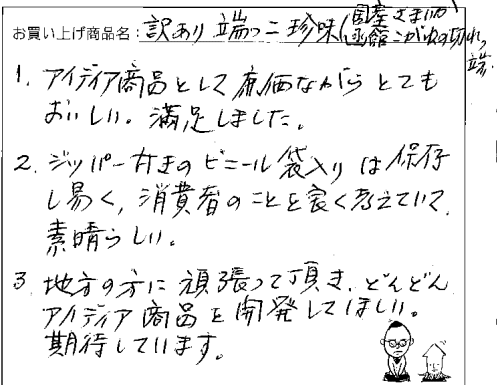 お買い上げ商品名：訳あり 端っこ 珍味(国産さきいか
函館こがねの切れっ
端
1. アイディア商品として廉価ながら とても
おいしい。満足しました。
2. ジッパー付きのビニール袋入り は保存
し易く、消費者のことを良く考えていて、
素晴らしい。
3. 地方の方に 頑張って頂き、どんどん
アイディア商品を開発してほしい。
期待しています。